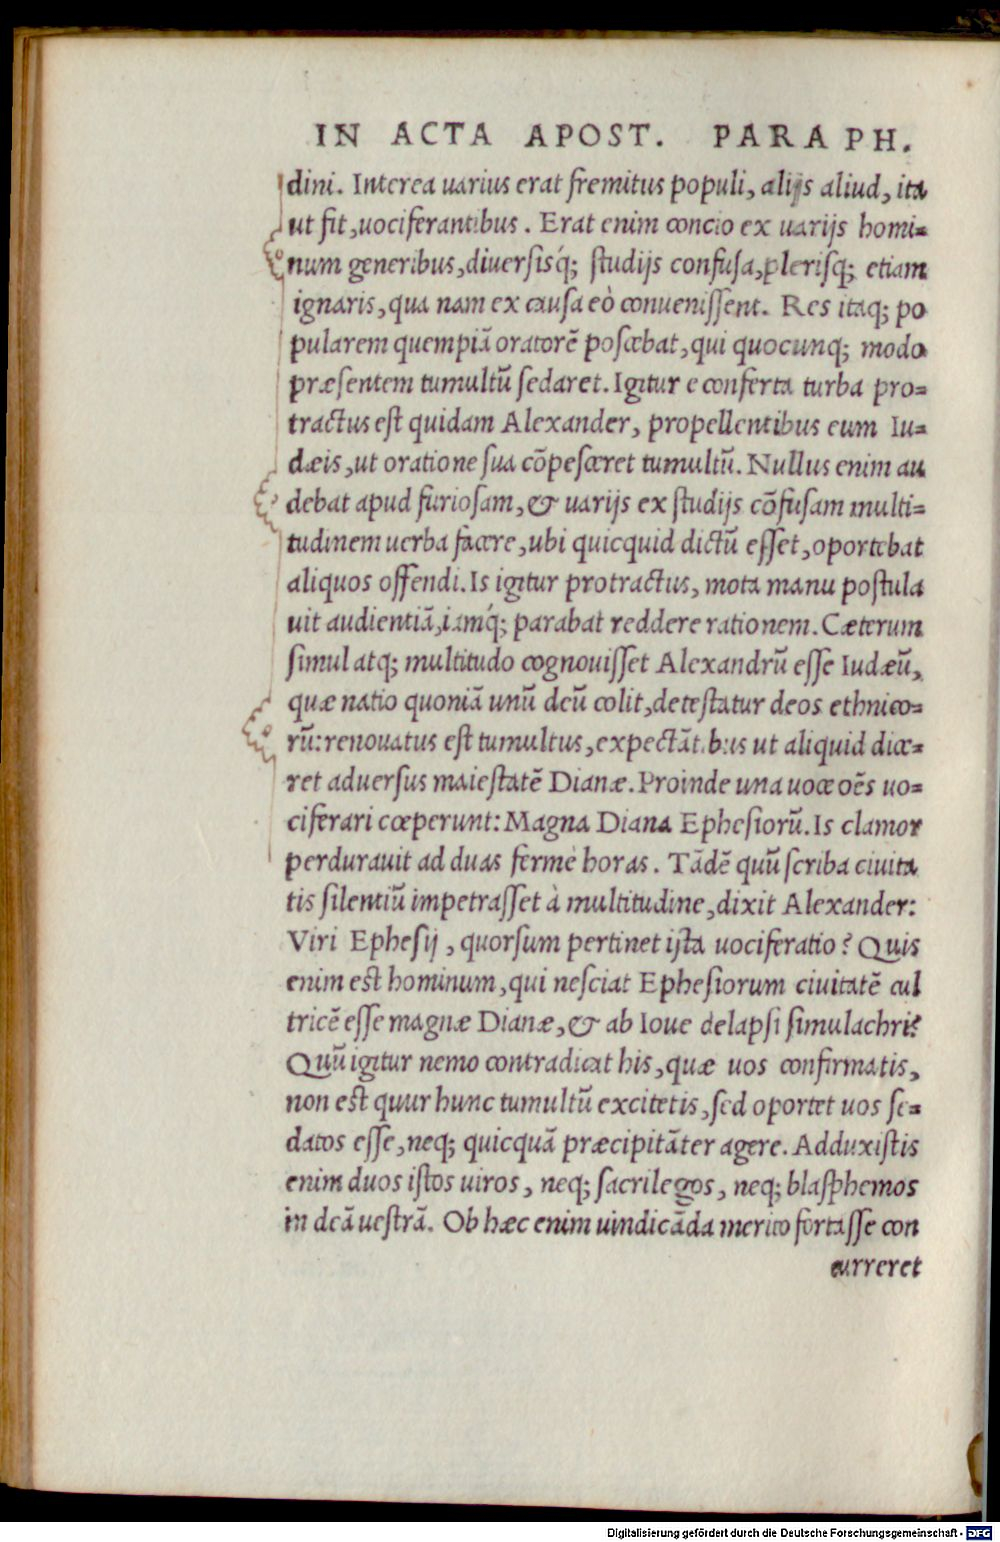 IN ACTA APOST. PARAPH.
dini. Interea uarius erat fremitus populi, alijs aliud, ita
ut fit, uociferantibus. Erat enim concio ex uarijs homi=
num generibus, diuersisq́; studijs confusa, plerisq; etiam
ignaris, qua nam ex causa eò conuenissent. Res itaq; po
pularem quempiã oratorẽ poscebat, qui quocunq; modo
præsentem tumultũ sedaret. Igitur e conferta turba pro=
tractus est quidam Alexander, propellentibus eum Iu=
dæis, ut oratione sua cõpesceret tumultũ. Nullus enim au
debat apud furiosam, & uarijs ex studijs cõfusam multi=
tudinem uerba facere, ubi quicquid dictũ esset, oportebat
aliquos offendi. Is igitur protractus, mota manu postula
uit audientiã, iamq́; parabat reddere rationem. Cæterum
simul atq; multitudo cognouisset Alexandrũ esse Iudæũ,
quæ natio quoniã unũ deũ colit, detestatur deos ethnico=
rũ: renouatus est tumultus, expectãtibus ut aliquid dice=
ret aduersus maiestatẽ Dianæ. Proinde una uoce oẽs uo=
ciferari cœperunt: Magna Diana Ephesiorũ. Is clamor
perdurauit ad duas ferme horas. Tãdẽ quũ scriba ciuita
tis silentiũ impetrasset à multitudine, dixit Alexander:
Viri Ephesij, quorsum pertinet ista uociferatio? Quis
enim est hominum, qui nesciat Ephesiorum ciuitatẽ cul
tricẽ esse magnæ Dianæ, & ab Ioue delapsi simulachri?
Quũ igitur nemo contradicat his, quæ uos confirmatis,
non est quur hunc tumultũ excitetis, sed oportet uos se=
datos esse, neq; quicquã præcipitãter agere. Adduxistis
enim duos istos uiros, neq; sacrilegos, neq; blasphemos
in deã uestrã. Ob hæc enim uindicãda merito fortasse con
curreret
Digitalisierung gefördert durch die Deutsche Forschungsgemeinschaft - DFG